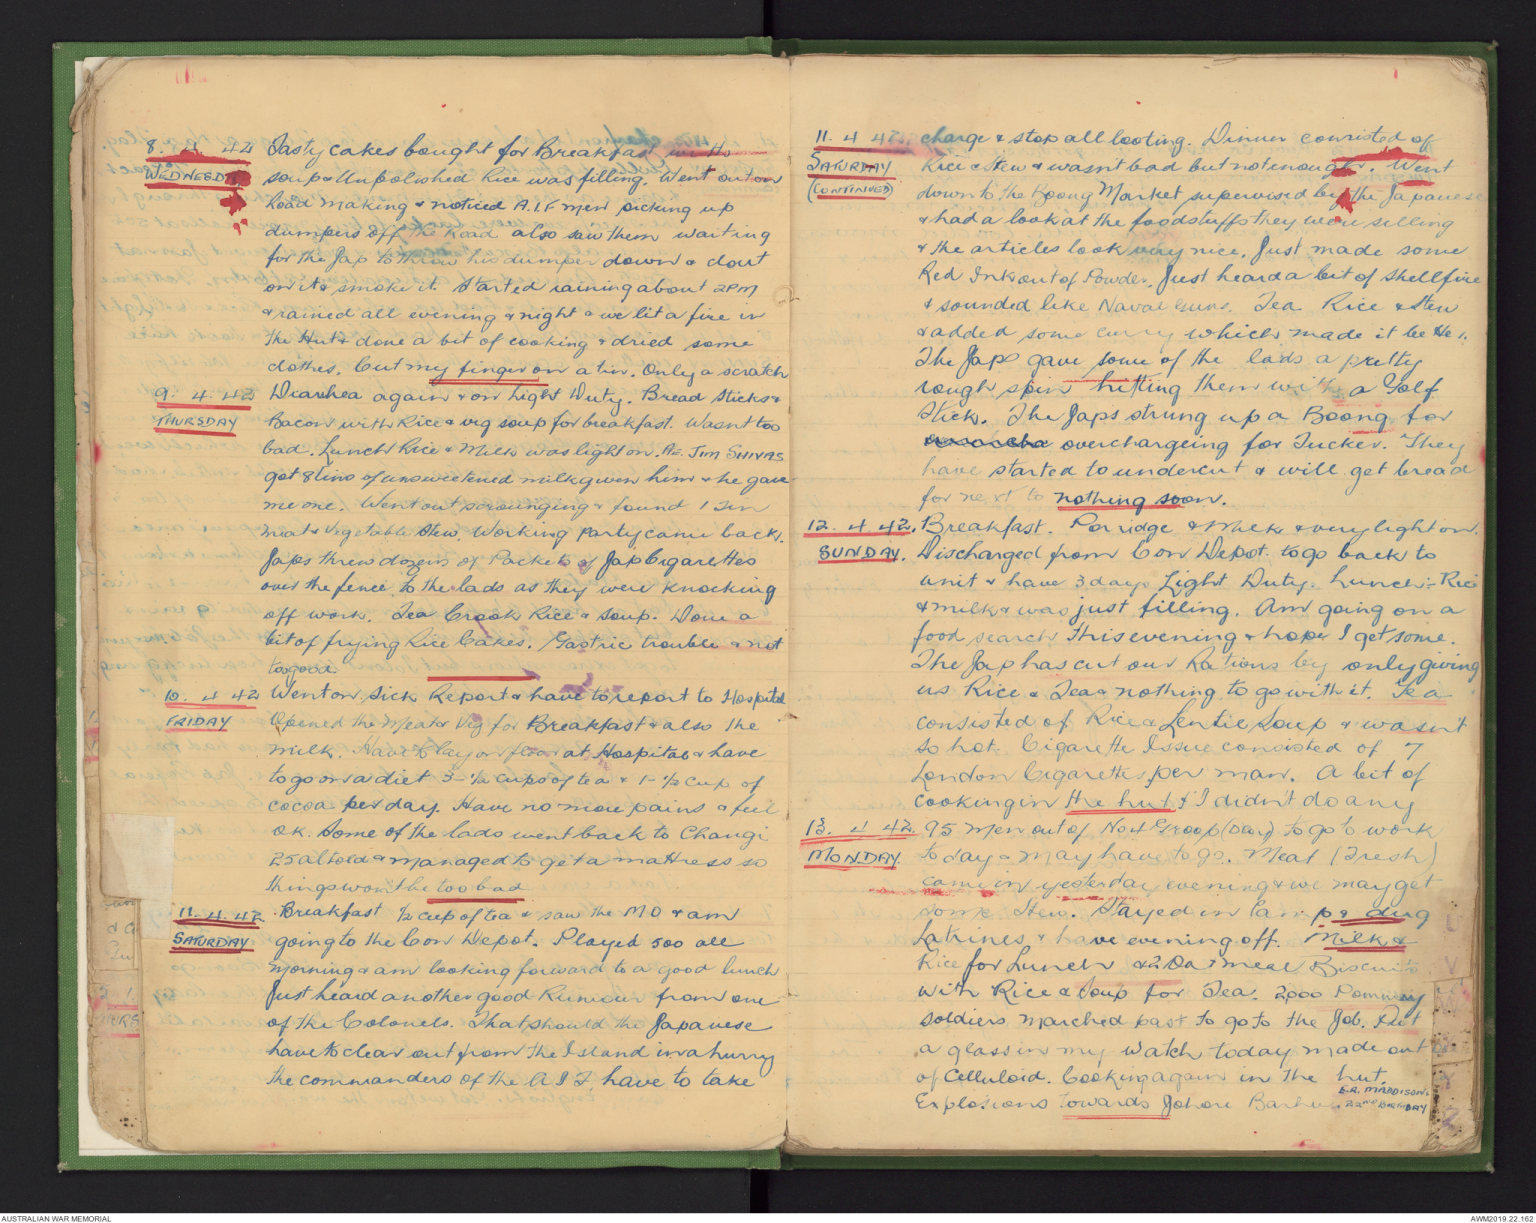 8. 4 42 Tasty cakes bought for Breakfast with
WEDNESDAY soup & Unpolished Rice was filling. Went out on
Road making & noticed A.I.F men picking up
dumpers off the Road also saw them waiting
for the Jap to throw his dumper down & clout
on it & smoke it. Started raining about 2PM
& rained all evening & night & we lit a fire in
the Hut & done a bit of cooking & dried some
clothes. Cut my finger on a tin. Only a scratch
9. 4. 42 Diarrhea again & on Light Duty. Bread Sticks &
THURSDAY Bacon with Rice & veg soup for breakfast. Wasn't too
bad. Lunch Rice & Milk was light on. JIM SHIVAS
got 8 tins of unsweetened milk given him & he gave
me one. Went out scrounging & found 1 Tin
meat & Vegetable Stew. Working Party came back.
Japs threw dozens of Packets of Jap Cigarettes
over the fence to the lads as they were knocking
off work. Tea Crook Rice & Soup. Done a
bit of frying Rice Cakes. Gastric trouble & not
to good.
10. 4 42 Went on Sick Report & have to report to Hospital
FRIDAY Opened the Meat & Veg for Breakfast & also the
milk. Have to lay on floor at Hospital & have
to go on a diet 3-½ cups of tea & 1-½ cup of
cocoa per day. Have no more pains & feel
OK. Some of the lads went back to Changi
25 all told & managed to get a mattress so
things won't be too bad
11. 4. 42 Breakfast ½ cup of tea & saw the MO & am
SATURDAY going to the Con Depot. Played 500 all
morning & am looking forward to a good lunch
Just heard another good Rumour from one
of the Colonels. That should the Japanese
have to clear out from the Island in a hurry
the commanders of the A I F have to take
11. 4 42. charge & stop all looting. Dinner consisted of
SATURDAY Rice & Stew & wasn't bad but not enough. Went
(CONTINUED) down to the Boong Market supervised by the Japanese
& had a look at the foodstuffs they were selling
& the articles look very nice. Just made some
Red Ink out of Powder. Just heard a bit of shellfire
& sounded like Naval Guns. Tea Rice & Stew
& added some curry which made it better.
The Japs gave some of the lads a pretty
rough spin hitting them with a Golf
Stick. The Japs strung up a Boong for
overchargeing for Tucker. They
have started to undercut & will get bread
for next to nothing soon.
12. 4 42. Breakfast. Poridge & Milk & very light on.
SUNDAY. Discharged from Con Depot. to go back to
unit & have 3 days Light Duty. Lunch:- Rice
& milk & was just filling. Am going on a
food search this evening & hope I get some.
The Jap has cut our Rations by only giving
us Rice & Tea & nothing to go with it. Tea
consisted of Rice & Lentil Soup & wasn't
so hot. Cigarette Issue consisted of 7
London Cigarettes per man. A bit of
cooking in the hut & I didn't do any
13. 4 42. 95 Men out of No 4 Group (Day) to go to work
MONDAY. to day & may have to go. Meat (Fresh)
came in yesterday evening & we may get
some Stew. Stayed in Camp & dug
Latrines & have evening off. Milk &
Rice for Lunch & 2 Oatmeal Biscuits
with Rice & Soup for Tea. 2000 Pommey
soldiers marched past to go to the Job. Put
a glass in my watch today made out
of Celluloid. Cooking again in the hut.
Explosions Towards Johore Bahru. E.R. MADDISON'S
22ND BIRTHDAY
AUSTRALIAN WAR MEMORIAL
AWM2019.22.162